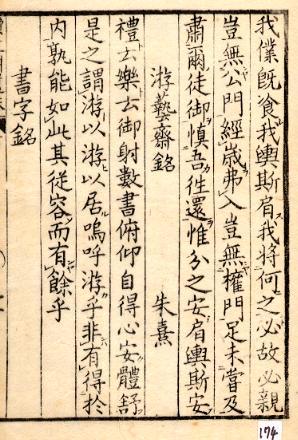 我僕既飡我輿斯肩我將何之必故必親
豈無公門經歲弗入豈無權門足未嘗及
肅爾徒御慎吾徃還惟分之安肩輿斯安
游藝齋銘　朱熹
禮云樂云御射數書俯仰自得心安體舒
是之謂游以游以居嗚呼游乎非有得於
內孰能如此其從容而有餘乎
書字銘
174